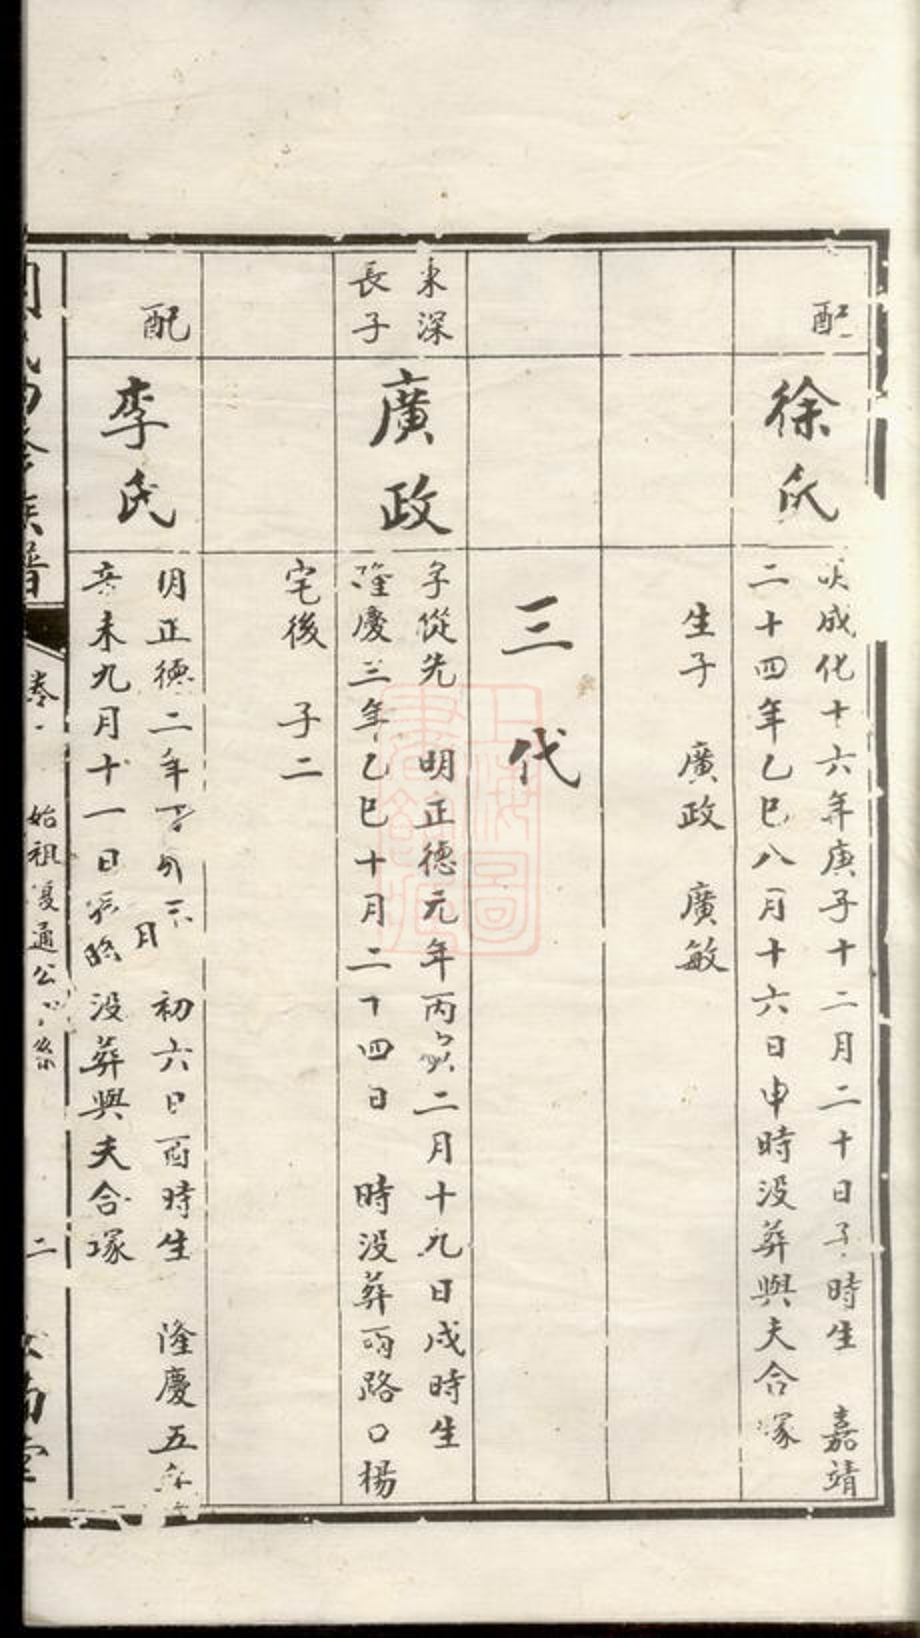 配
徐氏
明成化十六年庚子十二月二十日子時生 嘉靖
二十四年乙巳八月十六日申時没葬與夫合塚
生子 廣政 廣敏
三代
東深
長子
廣政
字從先 明正德元年丙寅二月十九日戌時生
隆慶三年乙巳十月二十四日 時没葬兩路口楊
宅後 子二
配
李氏
明正德二年 月 初六日酉時生 隆慶五年
辛未九月十一日 時没葬與夫合塚
族譜
卷一 始祖 通公
二